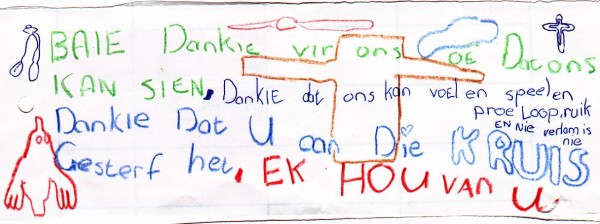 BAIE Dankie vir ons OE Dat ons
KAN SIEN, Dankie dat ons kan voel en speel en
proe Loop, ruik
EN Nie verdom is
nie
Dankie Dat U aan Die KRUIS
Gesterf het, EK HOU van U